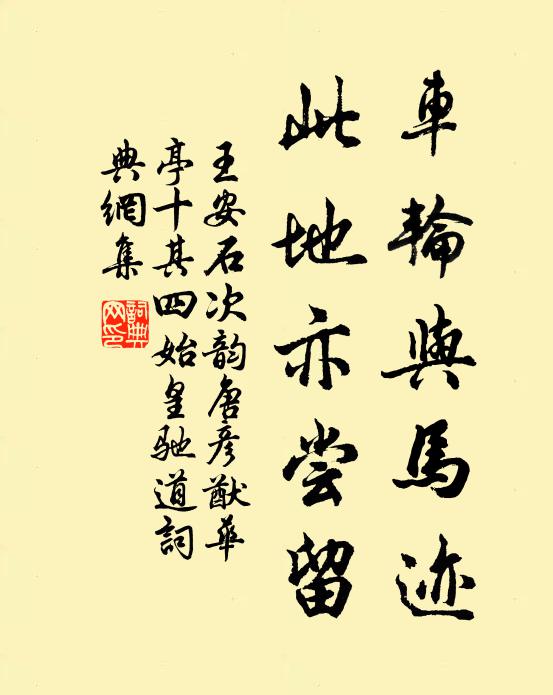 車輪與馬迹
此地亦嘗留
王安石次韵唐彦猷華
亭十其四始皇馳道詞
典網集
詞典網印